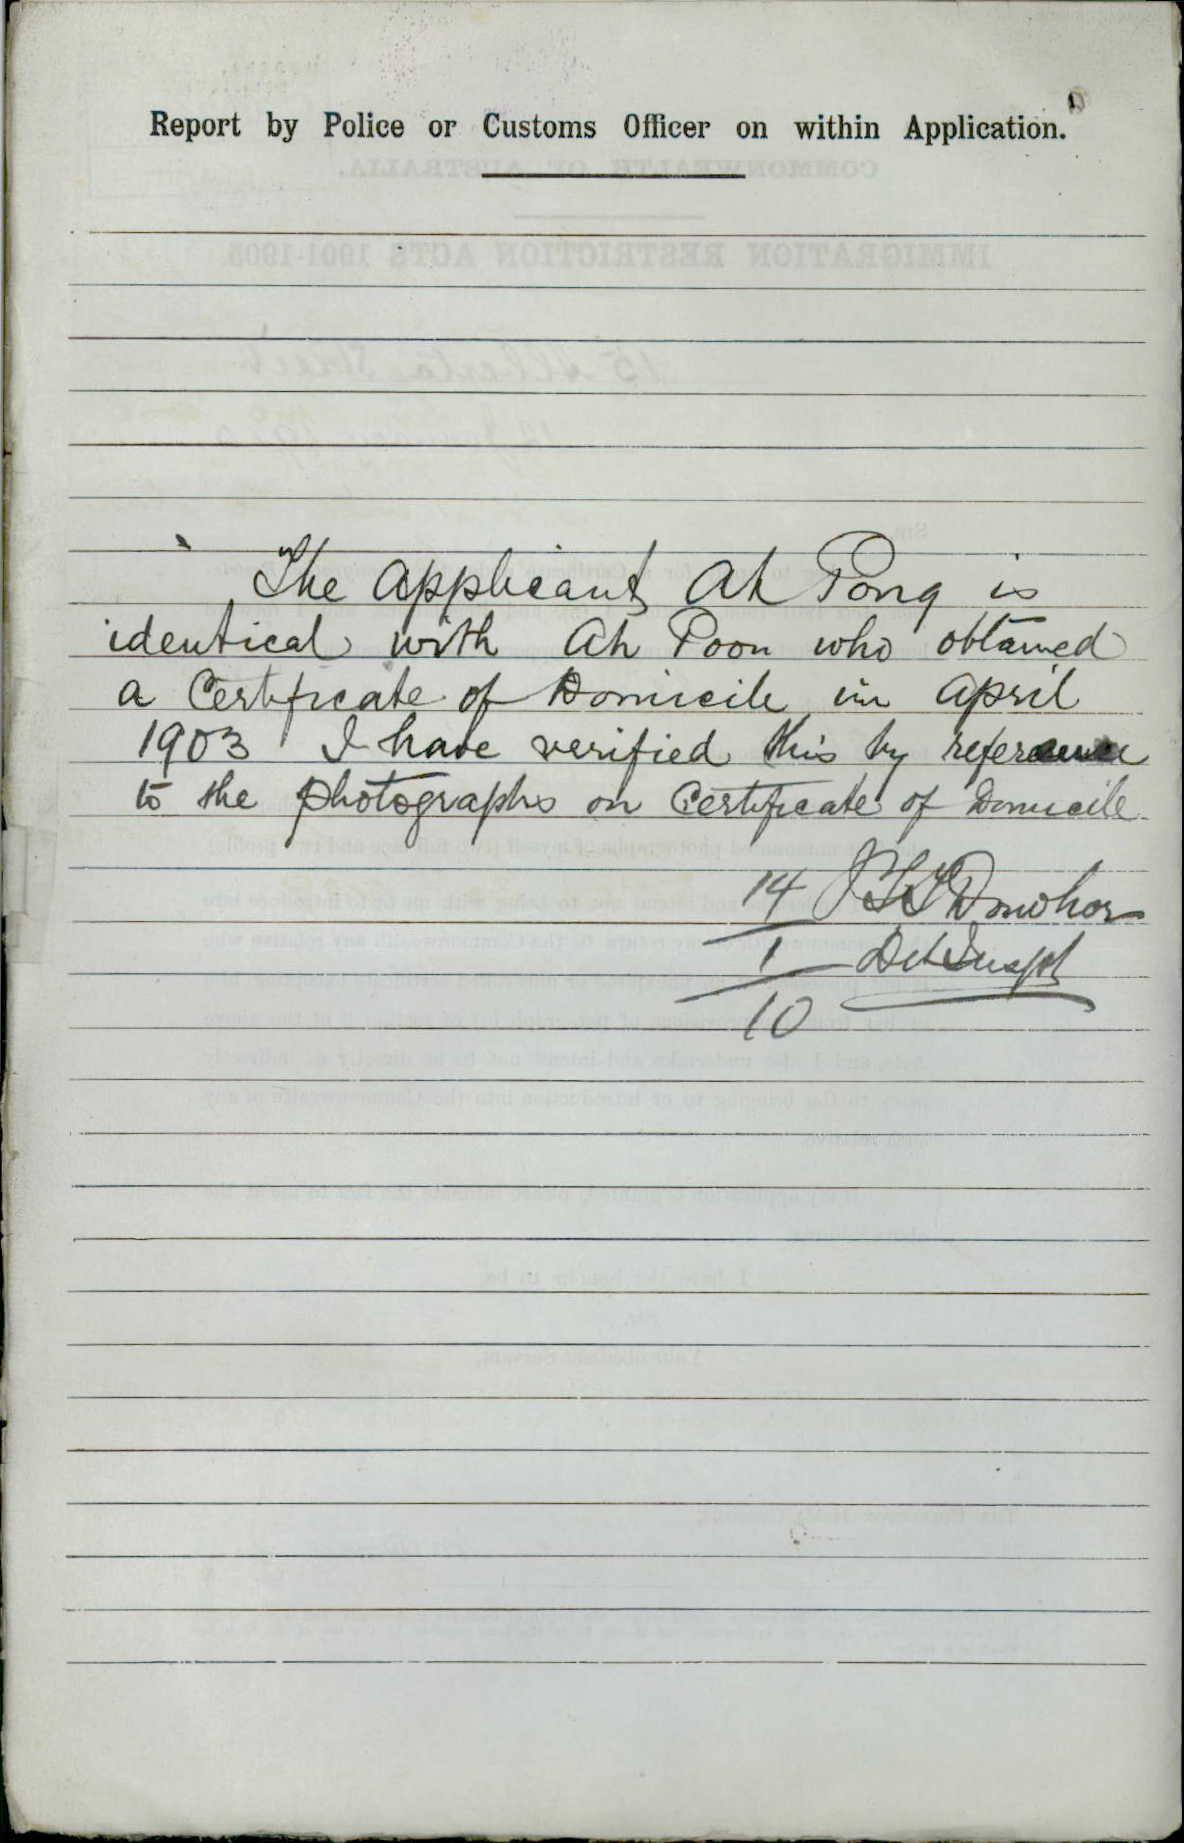 Report by Police or Customs Officer on within Application.
The applicant Ah Pong is
identical with Ah Poon who obtained
a Certificate of Domicile in april
1903 I have verified this by reference
to the photographs on Certificate of Domicile
14 Donohor
1 Det Inspt
10